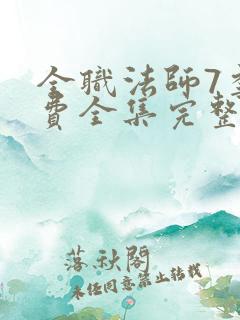 全職法師7
費全集完整
落秋閣
未經同意禁止轉載